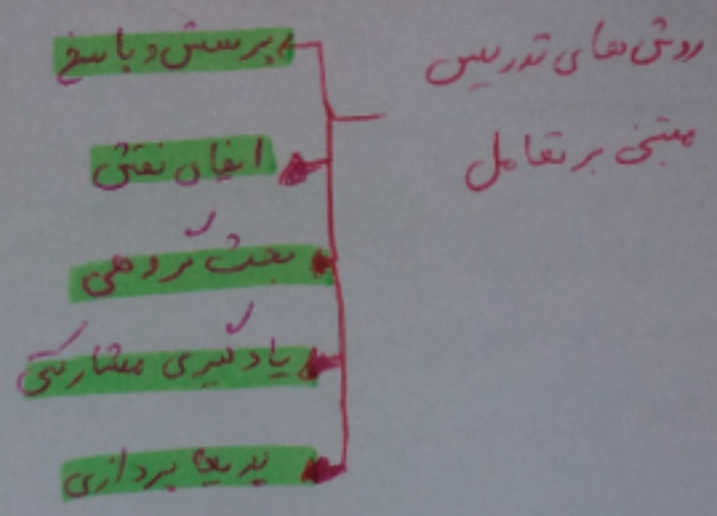 روش های تدریس
مبتنی بر تعامل
پرسش و پاسخ
ایفای نقش
بحث گروهی
یادگیری مشارکتی
بدیعه پردازی